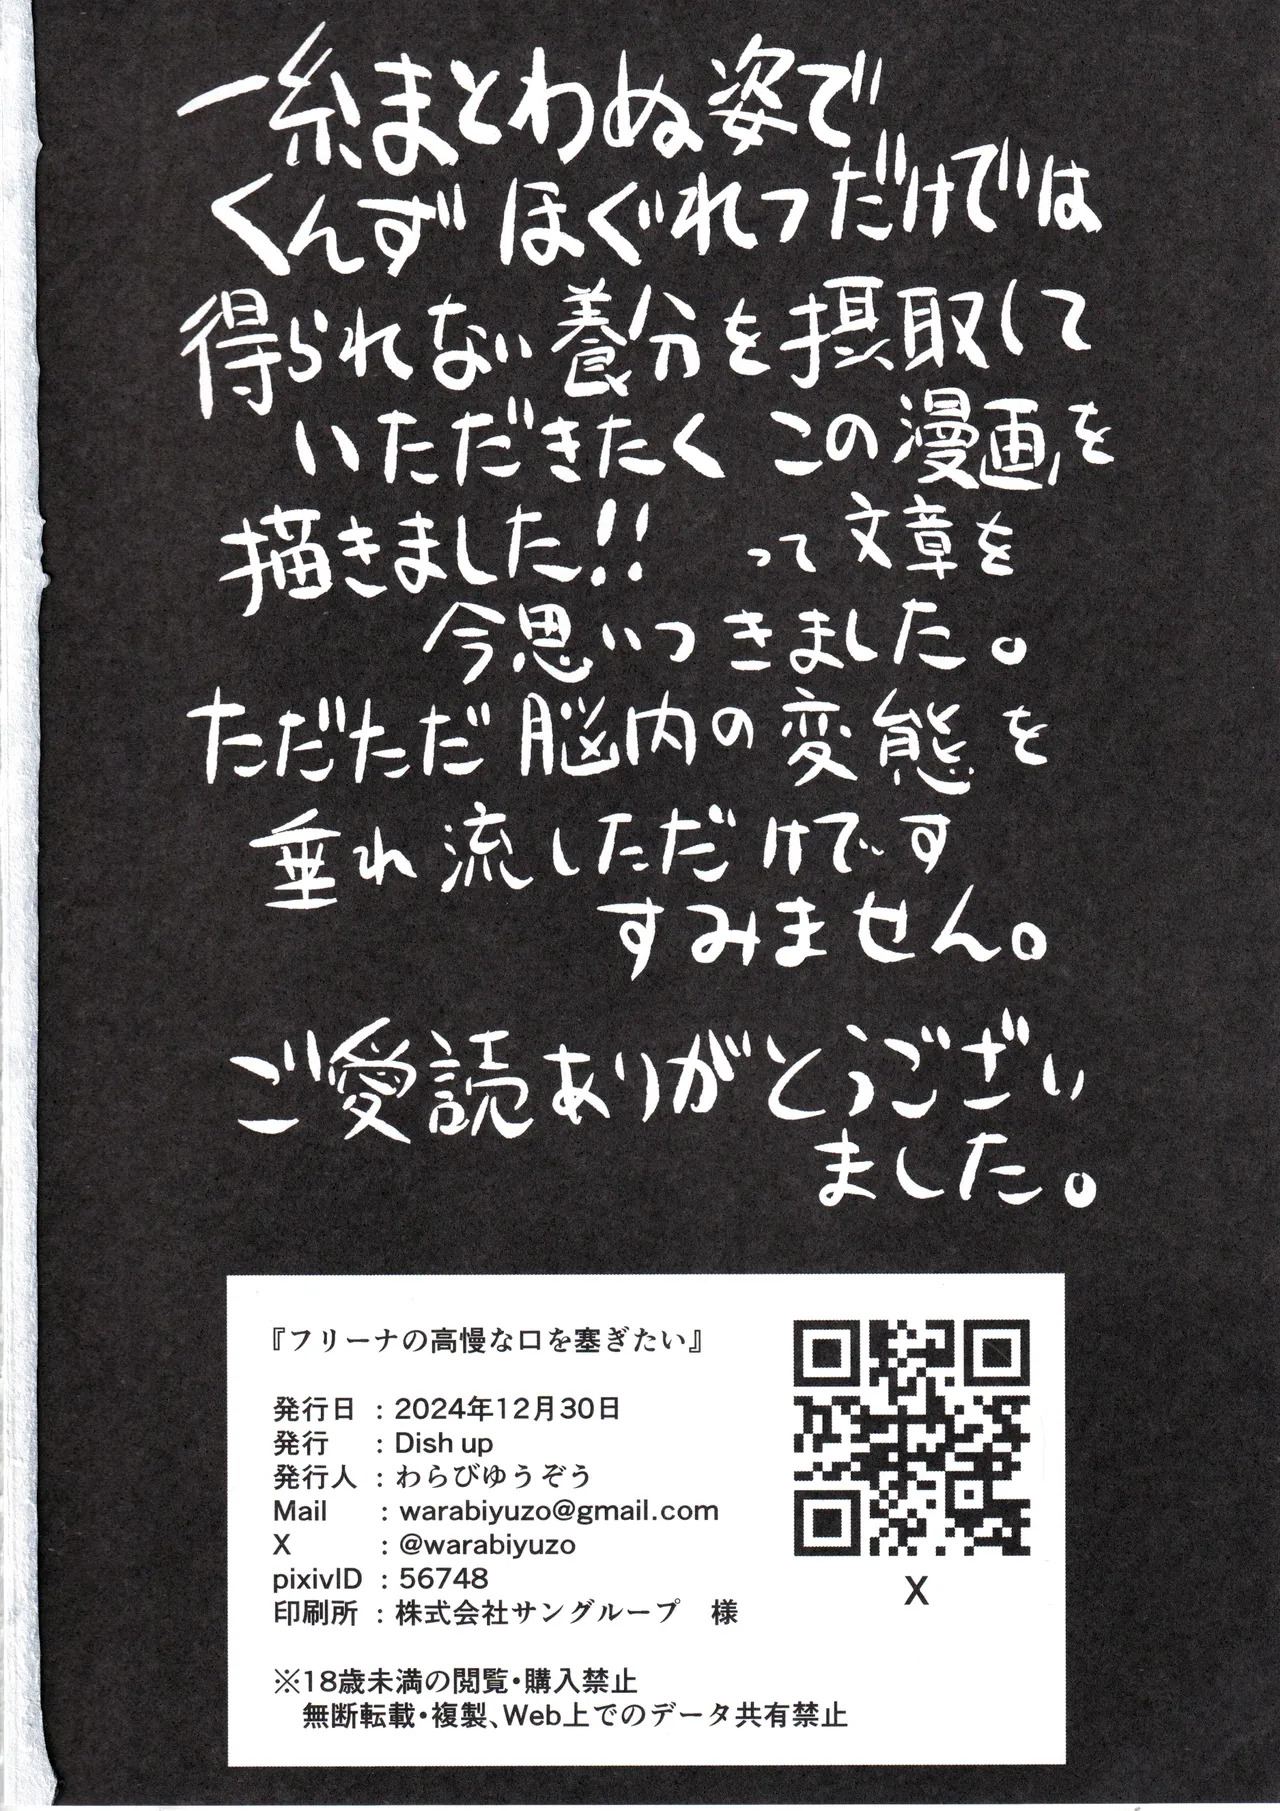 一糸まとわぬ姿で
くんずほぐれつだけでは
得られない養分を摂取して
いただきたくこの漫画を
描きました!! って文章を
今思いつきました。
ただただ脳内の変態を
垂れ流しただけです
すみません。
ご愛読ありがとうござい
ました。
『フリーナの高慢な口を塞ぎたい』
発行日 : 2024年12月30日
発行 : Dish up
発行人 : わらびゆうぞう
Mail : warabiyuzo@gmail.com
X : @warabiyuzo
pixivID : 56748
印刷所 : 株式会社サングループ 様
X
※18歳未満の閲覧・購入禁止
無断転載・複製、Web上でのデータ共有禁止